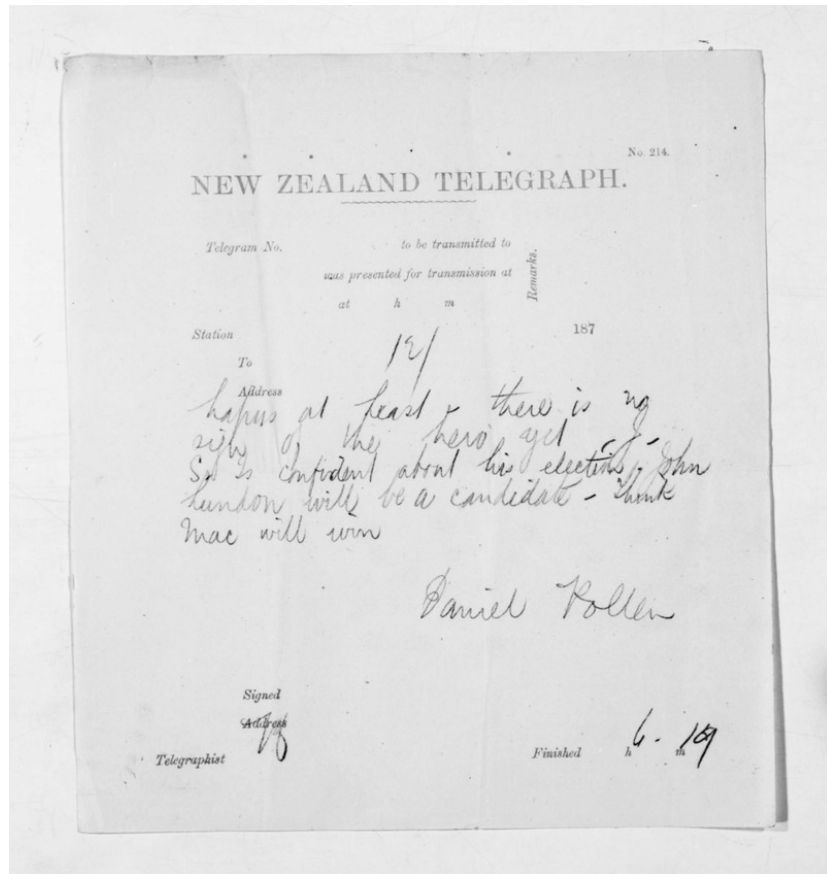 No. 214.
NEW ZEALAND TELEGRAPH.
Telegram No. to be transmitted to
was presented for transmission at
at h m
Remarks.
Station 187
To
Address
hapus at least & there is no
sign of the hero yet
is confident about his election, John
Lundon will be a candidate - think
Mac will win
Daniel Pollen
Signed
Address
Telegraphist
Finished h 6 - m